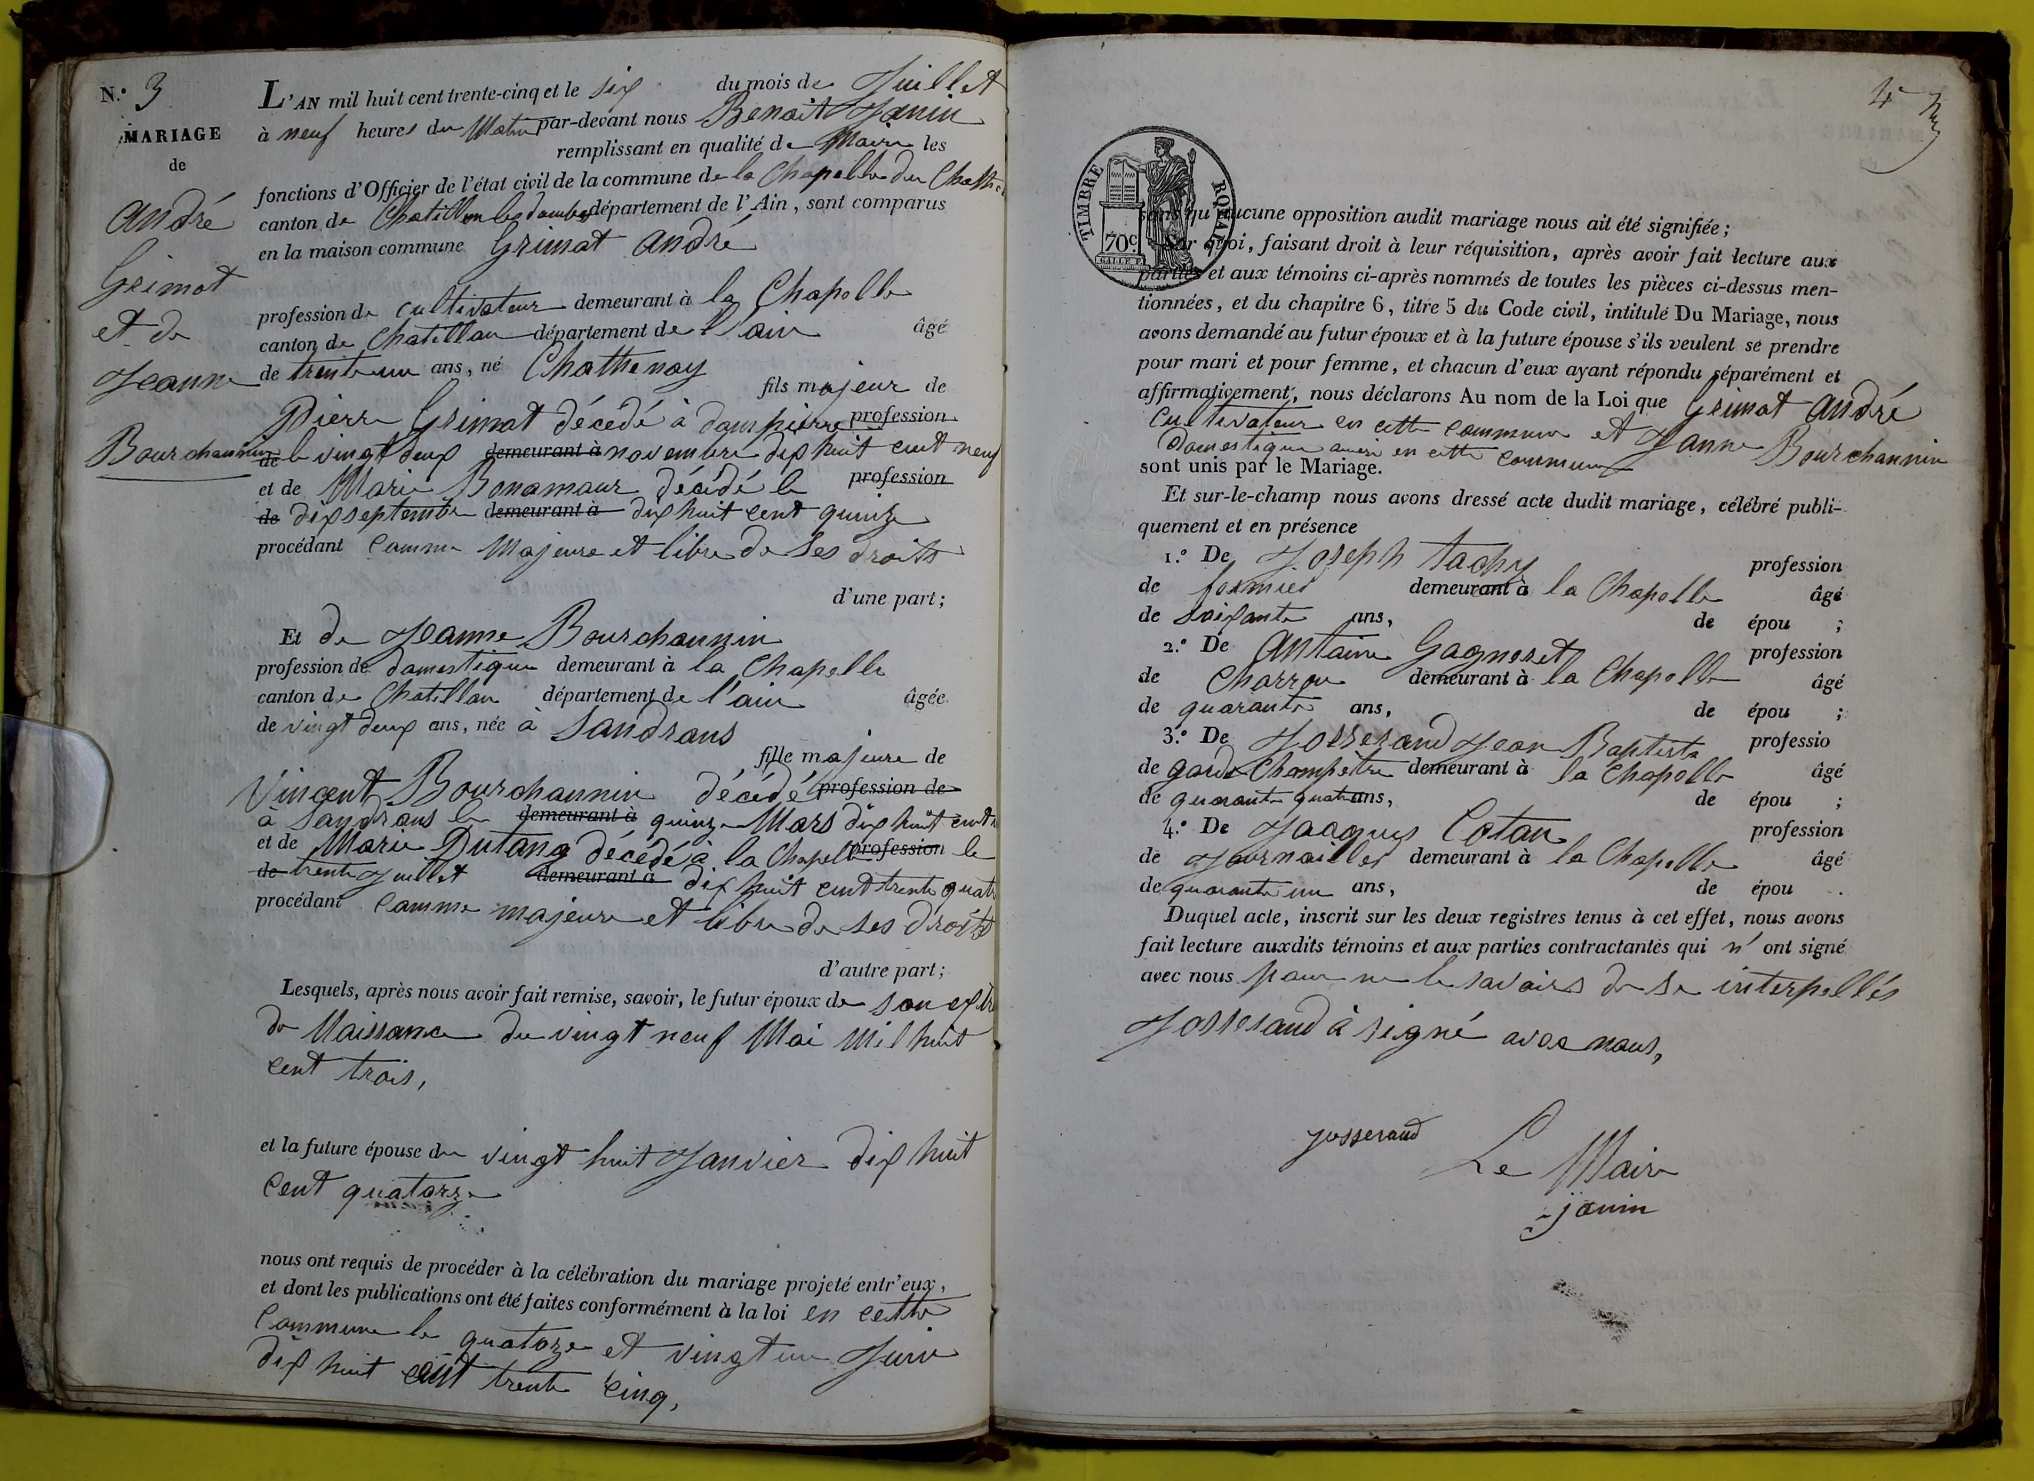 N.° 3
MARIAGE
de
André
Grimat
et de
Jeanne
Bourchannin
L'AN mil huit cent trente-cinq et le six du mois de Juillet
à neuf heures du Matin par-devant nous Benoit Janin
remplissant en qualité de Maire les
fonctions d'Officier de l'état civil de la commune de la Chapelle du
canton de Chatillon les dombes département de l'Ain, sont comparus
en la maison commune Grimat André
profession de cultivateur demeurant à la Chapelle
canton de Chatillon département de l'ain âgé
de trente un ans, né Chathenay
fils majeur de
Pierre Grimat décédé à dompierre profession
de le vingt deux demeurant à novembre dix huit cent neuf
et de Marie Bonamour décédé le profession
de dix septembre demeurant à dix huit cent quinze
procédant comme Majeure et libre de ses droits
d'une part;
Et de Jeanne Bourchannin
profession de domestique demeurant à la Chapelle
canton de Chatillon département de l'ain âgée
de vingt deux ans, née à Sandrans
fille majeure de
Vincent Bourchannin décédé profession de
à Sandrans le demeurant à quinze Mars dix huit cent
et de Marie Dutang décédé à la Chapelle profession le
de trente Juillet demeurant à dix huit cent trente quatre
procédant comme majeure et libre de ses droits
d'autre part;
Lesquels, après nous avoir fait remise, savoir, le futur époux de son
de Naissance du vingt neuf Mai Mil huit
cent trois,
et la future épouse du vingt huit Janvier dix huit
cent quatorze
nous ont requis de procéder à la célébration du mariage projeté entr'eux,
et dont les publications ont été faites conformément à la loi en cette
commune le quatorze et vingt un Juin
dix huit cent trente cinq,
4
TIMBRE ROYAL
70c.
sans qu'aucune opposition audit mariage nous ait été signifiée;
Sur quoi, faisant droit à leur réquisition, après avoir fait lecture aux
parties et aux témoins ci-après nommés de toutes les pièces ci-dessus men-
tionnées, et du chapitre 6, titre 5 du Code civil, intitulé Du Mariage, nous
avons demandé au futur époux et à la future épouse s'ils veulent se prendre
pour mari et pour femme, et chacun d'eux ayant répondu séparément et
affirmativement, nous déclarons Au nom de la Loi que Grimat André
Cultivateur en cette commune et Jeanne Bourchannin
Domestique aussi en cette commune
sont unis par le Mariage.
Et sur-le-champ nous avons dressé acte dudit mariage, célébré publi-
quement et en présence
1.° De Joseph tachy profession
de fermier demeurant à la Chapelle âgé
de soixante ans, de épou ;
2.° De Antoine Gagneret profession
de Charron demeurant à la Chapelle âgé
de quarante ans, de épou ;
3.° De Josserand Jean Baptiste professio
de garde Champetre demeurant à la Chapelle âgé
de quarante quatre ans, de épou ;
4.° De Jacques Cotan profession
de Journailler demeurant à la Chapelle âgé
de quarante un ans, de épou .
Duquel acte, inscrit sur les deux registres tenus à cet effet, nous avons
fait lecture auxdits témoins et aux parties contractantes qui n' ont signé
avec nous pour ne le savoirs de se interpellés
Josserand à signé avec nous,
josserand
Le Maire
janin